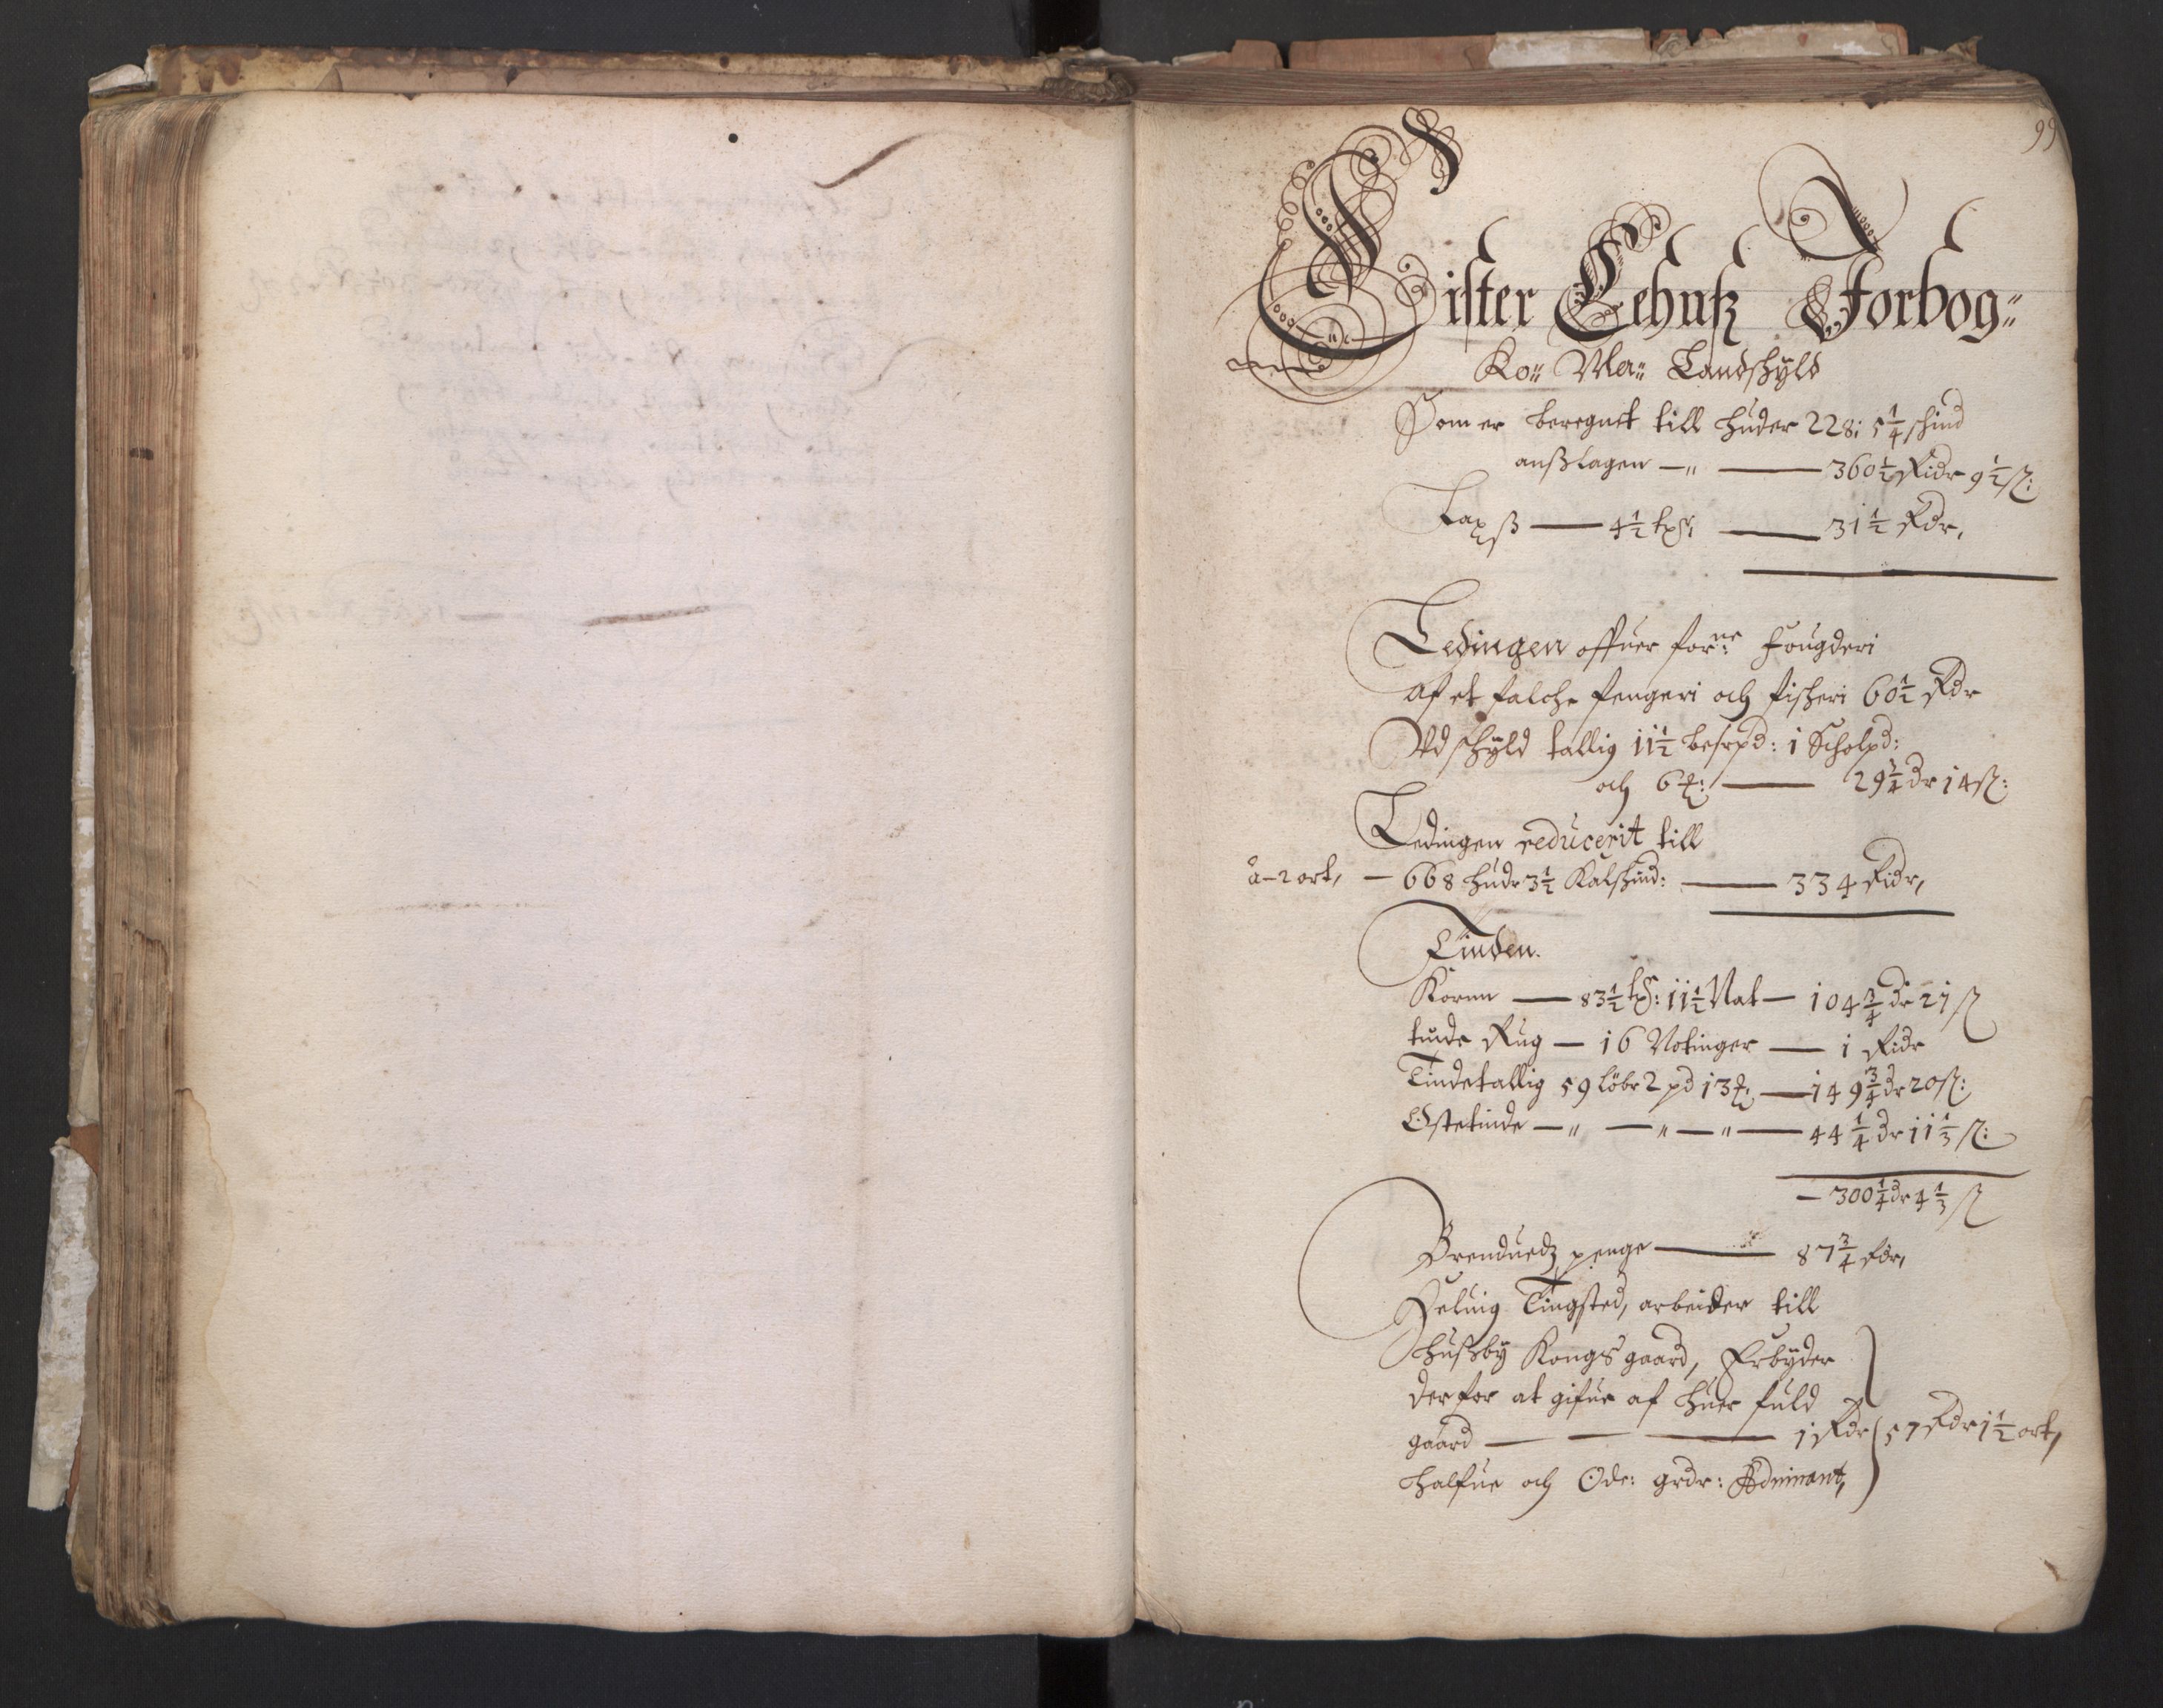 99
Lister Lehnß Jorbog"
Ko" Ma" Landschyld
Som er beregnet till huder 228: 5 1/4 schind
anßlagen —" — 360 1/2 Ridr 9 1/2 ß:
4 1/2 — 31 1/2 Rdr,
Ledingen offuer forne: fougderi
Af et falche fengeri och fischeri 60 1/2 Rdr
Vdschyld tallig 11 1/2 besrpd: 1 Scholpd:
och 6 — 29 3/4 dr 14 ß:
Ledingen reducerit till
à–2 ort, — 668 hudr 3 1/2 Kalschind: — 334 Ridr,
Tinden.
Kornn — 83 1/2 : 11 1/2 Vat — 104 3/4 dr 21 ß
tinde Rug — 16 Votinger — 1 Ridr
Tindetallig 59 löbr 2 pd 13 — 149 3/4 dr 20 ß:
Ostetinde —" —"—"— 44 1/4 dr 11 1/3 ß:
— 300 1/4 dr 4 1/3 ß
Brenduedz penge — 87 3/4 Rdr,
Seluig Tingsted, arbeider till
Hußby Kongs gaard, Erbyder
derfor at gifue af huer fuld
gaard — — — 1 Rdr 57 Rdr 1 1/2 ort,
halfue och Öde: grdr: